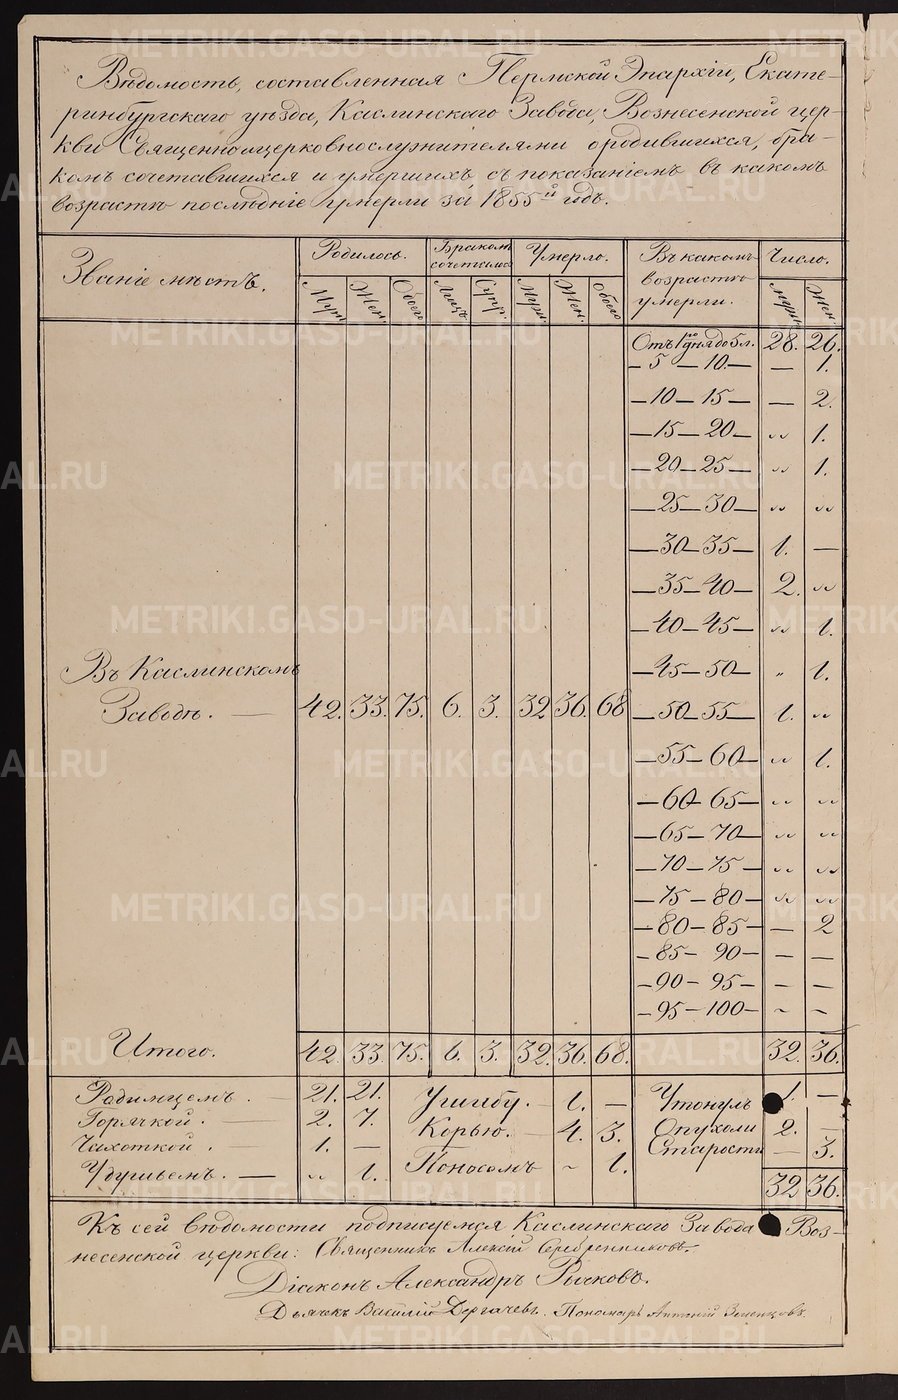 Вѣдомость, составленная Пермской Эпархіи, Екате-
ринбургскаго уѣзда, Каслинскаго Завода, Вознесенской цер-
кви Священноцерковнослужителями ородившихся, бра-
комъ сочетавшихся и умершихъ съ показаніемъ въ какомъ
возрастѣ послѣдніе умерли за 1855й годъ.
Званіе мѣстъ. Родилось. Бракомъ сочетались Умерло. Въ какомъ возрастѣ умерли. Число.
Муж. Жен. Обоего Лицъ Супр. Муж. Жен. Обоего Муж. Жен.
Отъ 1го дня до 5 л. 28. 26.
— 5 — 10. — — 1.
— 10 — 15 — — 2.
— 15 — 20 — " 1.
— 20 — 25 — " 1.
— 25 — 30 — " "
— 30 — 35 — 1. —
— 35 — 40 — 2. "
— 40 — 45 — " 1.
— 45 — 50 — " 1.
Въ Каслинскомъ
Заводѣ. — 42. 33. 75. 6. 3. 32 36. 68 — 50 — 55 — 1. "
— 55 — 60 — " 1.
— 60 — 65 — " "
— 65 — 70 — " "
— 70 — 75 — " "
— 75 — 80 — " "
— 80 — 85 — — 2
— 85 — 90 — — —
— 90 — 95 — — —
— 95 — 100 — ~ ~
Итого. 42. 33. 75. 6. 3. 32. 36. 68. 32. 36.
Родимцемъ. — 21. 21. Ушибу. — 1. — Утонулъ 1. —
Горячкой. — 2. 7. Корью. — 4. 3. Опухоли 2. —
Чахоткой. 1. — Поносомъ ~ 1. Старости — 3.
Удушьемъ. — " 1. 32 36.
Къ сей вѣдомости подписуемся Каслинскаго Завода Воз-
несенской церкви: Священникъ Алексій Серебренниковъ.
Діаконъ Александръ Рычковъ.
Дьячекъ Василій Дергачевъ. Пономарь Антоній
METRIKI.GASO-URAL.RU